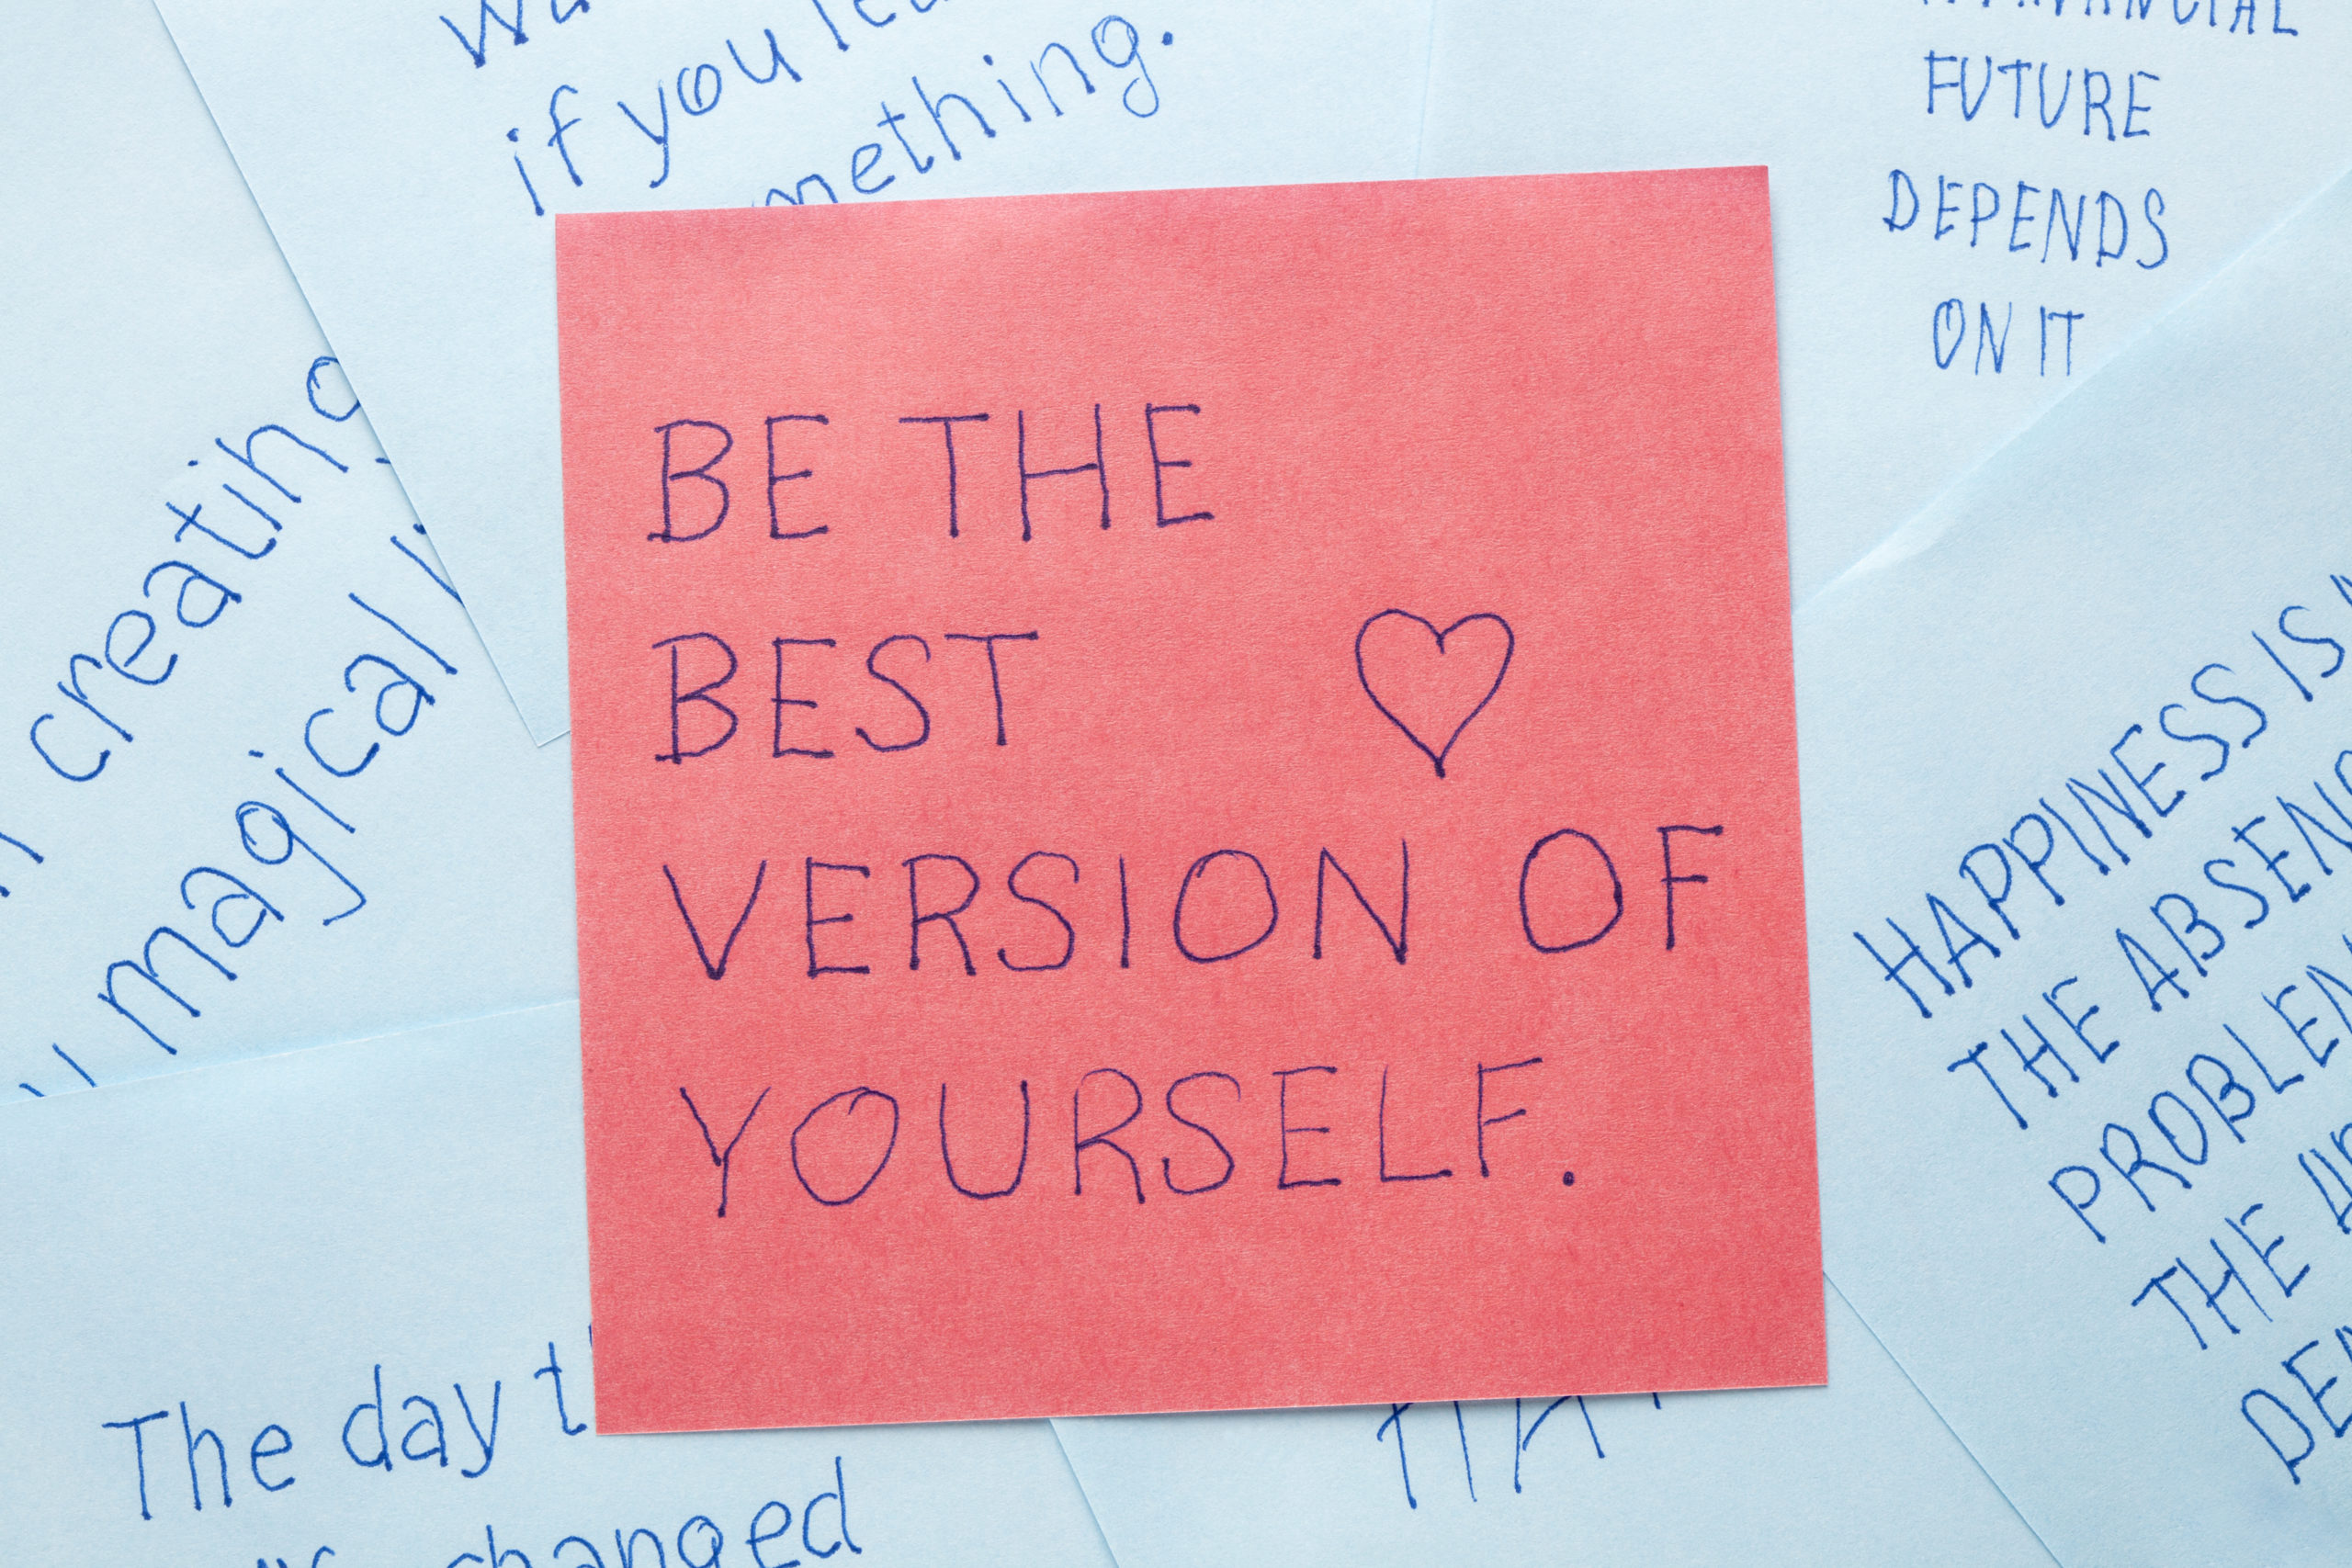 if you
something.
FINANCIAL
FUTURE
DEPENDS
ON IT
creating
magical
BE THE
BEST
VERSION OF
YOURSELF.
HAPPINESS IS
THE
THE
The day
changed